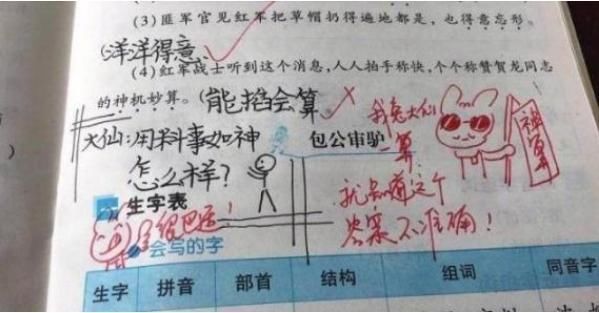 (3) 匪军官见红军把草帽扔得遍地都是,也得意忘形。
(洋洋得意)
(4) 红军战士听到这个消息,人人拍手称快,个个称赞贺龙同志
的神机妙算。(能掐会算)
我兔大仙
一算
就知道这个
答案不准确!
神算
大仙:用料事如神
怎么样?
包公审驴
生字表
很巴适!
会写的字
生字 拼音 部首 结构 组词 同音字